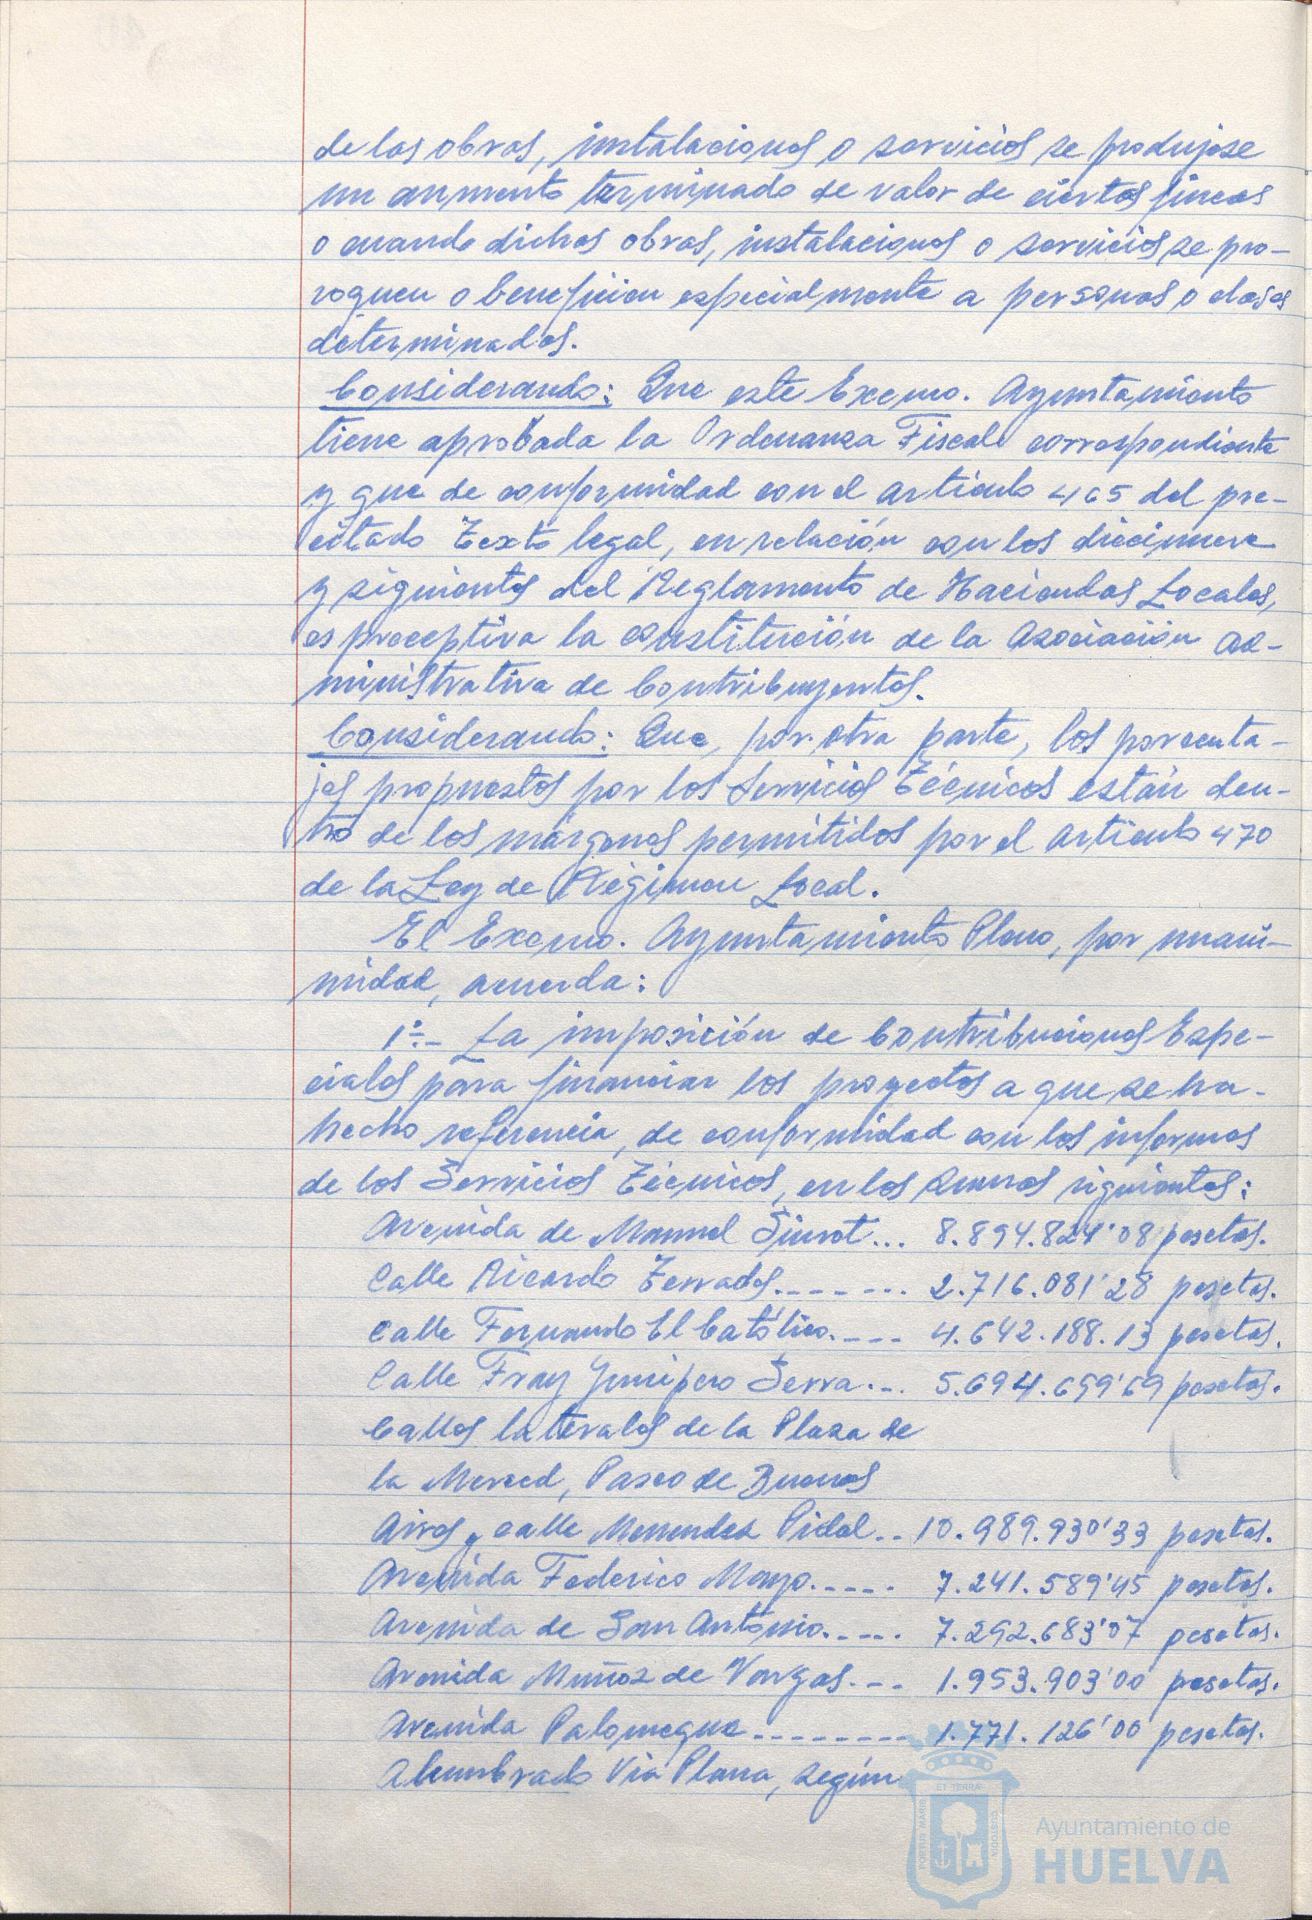 de las obras, instalaciones o servicios se produjese
un aumento terminado de valor de ciertas fincas
o cuando dichas obras, instalaciones o servicios se pro-
voquen o beneficien especialmente a personas o clases
determinadas.
Considerando: Que este Excmo. Ayuntamiento
tiene aprobada la Ordenanza Fiscal correspondiente
y que de conformidad con el artículo 465 del pre-
citado Texto legal, en relación con los diecinueve
y siguientes del Reglamento de Haciendas Locales,
es preceptiva la constitución de la Asociación Ad-
ministrativa de Contribuyentes.
Considerando: Que, por otra parte, los porcenta-
jes propuestos por los Servicios Técnicos están den-
tro de los márgenes permitidos por el artículo 470
de la Ley de Régimen Local.
El Excmo. Ayuntamiento Pleno, por unani-
midad, acuerda:
1º.- La imposición de Contribuciones Espe-
ciales para financiar los proyectos a que se ha
hecho referencia, de conformidad con los informes
de los Servicios Técnicos, en los sumas siguientes:
Avenida de Manuel Siurot... 8.894.824'08 pesetas.
Calle Ricardo Terrades....... 2.716.081'28 pesetas.
Calle Fernando El Católico.... 4.642.188.13 pesetas.
Calle Fray Junípero Serra... 5.694.659'69 pesetas.
Calles laterales de la Plaza de
la Merced, Paseo de Buenos
Aires y calle Menendez Pidal.. 10.989.930'33 pesetas.
Avenida Federico Mayo..... 7.241.589'45 pesetas.
Avenida de San Antonio..... 7.292.683'07 pesetas.
Avenida Muñoz de Vargas... 1.953.903'00 pesetas.
Avenida Palomeque......... 1.771.126'00 pesetas.
Alumbrado Via Plana, según
ET TERRAE
PORTUS MARIS
CUSTODIA
Ayuntamiento de
HUELVA